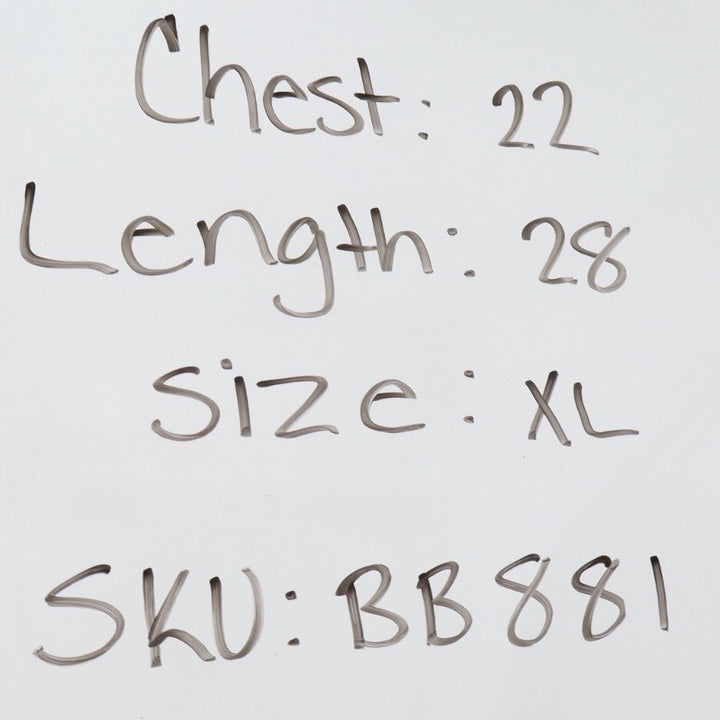 Chest: 22
Length: 28
Size: XL
SKU: BB881